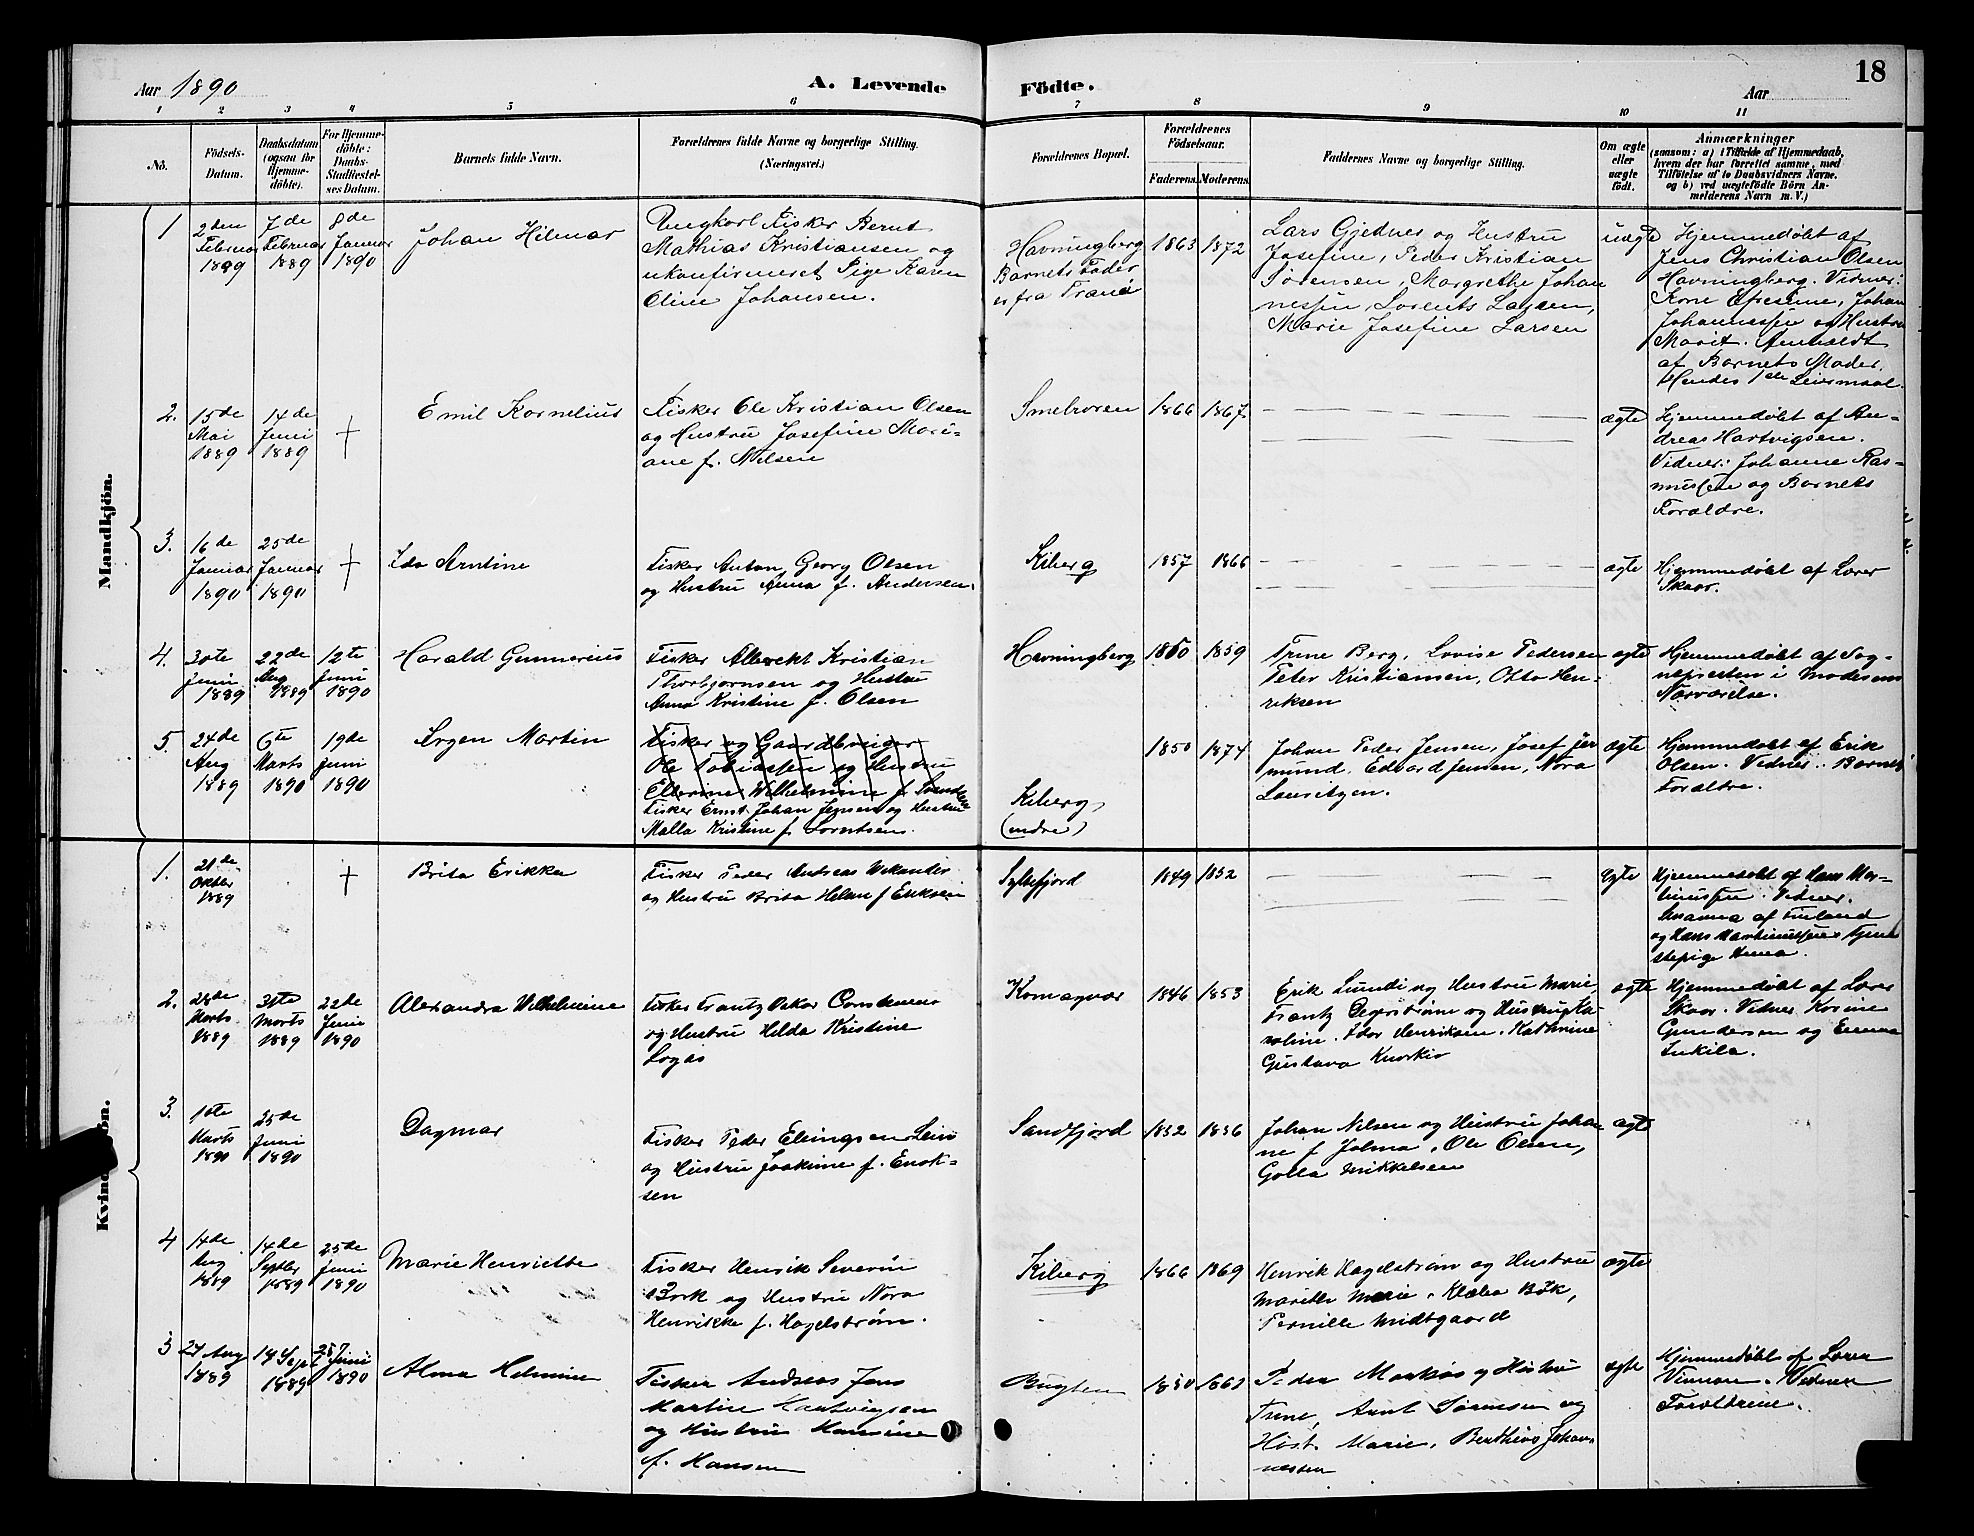 18
Aar 1890
A. Levende Födte.
Aar
1 2 3 4 5 6 7 8 9 10 11
No.
Födsels-
Datum.
Daabsdatum
(ogsaa for
Hjemme-
döbte).
For Hjemme-
döbte:
Daabs-
Stadfæstel-
ses Datum.
Barnets fulde Navn.
Forældrenes fulde Navne og borgerlige Stilling.
(Næringsvei.)
Forældrenes Bopæl.
Forældrenes
Födselsaar.
Faderens.
Moderens.
Faddernes Navne og borgerlige Stilling.
Om ægte
eller
uægte
födt.
Anmærkninger
(saasom: a) i Tilfælde af Hjemmedaab,
hvem der har forrettet samme, med
Tilföielse af to Daabsvidners Navne,
og b) ved uægtefödte Börn An-
melderens Navn m. V.)
Mandkjön.
1
2den
Februar
1889
7de
Februar
1889
8de
Januar
1890
Johan Hilmar
Ungkarl Fisker Bernt
Mathias Kristiansen og
ukonfirmeret Pige Karen
Oline Johansen.
Havningberg
Barnets Fader
er fra Tranö
1863
1872
Lars Gjednes og Hustru
Josefine, Peder Kristian
Sörensen, Margrethe Johan
nessen, Lorents Larsen,
Marie Josefine Larsen
uægte
Hjemmedöbt af
Jens Christian Olsen
Havningberg. Vidner:
Kone Efresine, Johan
Johannessen og Hustru
Marit. Anmeldt
af Barnets Moder.
Hendes 1ste Leiermaal.
2.
15de
Mai
1889
14de
Juni
1889
+
Emil Kornelius
Fisker Ole Kristian Olsen
og Hustru Josefine Mari-
ane f. Nilsen
Smelroren
1866
1867
ægte
Hjemmedöbt af An-
dreas Hartvigsen.
Vidner: Johanne Ras-
mussen og Barnets
Forældre.
3.
16de
Januar
1890
25de
Januar
1890
+
Ida Arntine
Fisker Anton Georg Olsen
og Hustru Anna f. Andersen.
Kiberg
1857
1866
ægte
Hjemmedöbt af Lærer
Skaar.
4.
30te
Juni
1889
22de
Aug
1889
12te
Juni
1890
Harald Gunnerius
Fisker Albrekt Kristian
Thorbjørnsen og Hustru
Anna Kristine f. Olsen
Havningberg
1860
1859
Trine Berg, Lovise Pedersen
Peter Kristiansen, Otto Hen-
riksen
ægte
Hjemmedöbt af Sog-
nepresten i Moderens
Nærværelse.
5.
24de
Aug
1889
6te
Marts
1890
19de
Juni
1890
Ørgen Martin
Fisker og Gaardbruger
Ole Tobiassen og Hustru
Ellevine Wilhelmine f.
Fisker Ernst Johan Jensen og Hustru
Malla Kristine f. Lorntsen.
Kiberg,
(indre)
1850
1874
Johan Peder Jensen, Josef Jer
mund, Edvard Jensen, Nora
Lauritzen.
ægte
Hjemmedöbt af Erik
Olsen. Vidner: Barnets
Forældre.
Kvindekjön.
1.
21de
Oktbr
1889
+
Brita Erikka
Fisker Peder Andreas Wikander
og Hustru Brita Helene f Eriksen
Syltefjord
1849
1852
ægte
Hjemmedöbt af Hans Mar-
tinussen. Vidner:
Susanna af Finland
og Hans Martinussens Tjene
stepige Anna.
2.
28de
Marts
1889
31te
Marts
1889
22de
Juni
1890
Alexandra Wilhelmine
Fisker Frantz Oskar
og Hustru Hilda Kristine
Komagvær
1846
1853
Erik Lundi og Hustru Marie,
Frantz og Hustru Ka-
roline. Henriksen. Kathrine
Gustava
ægte
Hjemmedöbt af Lærer
Skaar. Vidner Karine
Gundersen og Emma
Inkila.
3.
10te
Marts
1890
25de
Juni
1890
Dagmar
Fisker Peder Ellingsen Lein
og Hustru Joakime f. Enok-
sen
Sandfjord
1852
1856
Johan Nilsen og Hustru Johan
ne f Jolma, Ole Olsen,
Golla Mikkelsen
ægte
4
14de
Aug
1889
14de
Septbr
1889
25de
Juni
1890
Marie Henriette
Fisker Henrik Severin
Bork og Hustru Nora
Henrikke f. Hagelstrøm.
Kiberg
1866
1869
Henrik Hagelstrøm og Hustru
Marithe Marie. Klæba Bök,
Pernille Midtgaard
ægte
5
27 Aug
1889
14 Sept
1889
25 Juni
1890
Alma Helmine
Fisker Andreas Jens
Martin Hartvigsen
og Hustru Hansine
f. Hansen
Bugten
1850
1863
Peder Markus og Hustru
Trine, Arnt Sörensen og
Hust. Marie, Berthins Johan-
nessen
ægte
Hjemmedöbt af Lærer
Vinnan. Vidner
Forældrene.